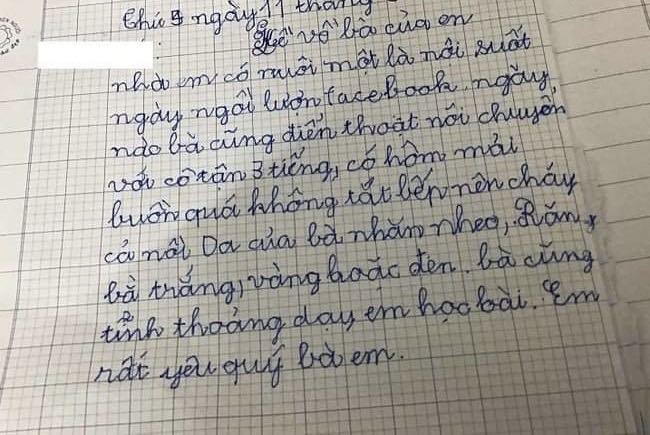 thứ 5 ngày 11 tháng
Kể về bà của em
nhà em có nuôi một là nội suốt
ngày ngồi lướn facebook, ngày
nào bà cũng điển thoạt nói chuyện
với cô tận 3 tiếng, có hôm mải
buôn quá không tắt bếp nên cháy
cả nồi Da của bà nhăn nheo, Răng
bà trắng, vàng hoặc đen. bà cũng
tỉnh thoảng dạy em học bài. Em
rất yêu quý bà em.